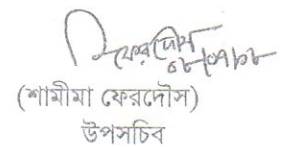 ফেরদৌস
(শামীমা ফেরদৌস)
উপসচিব